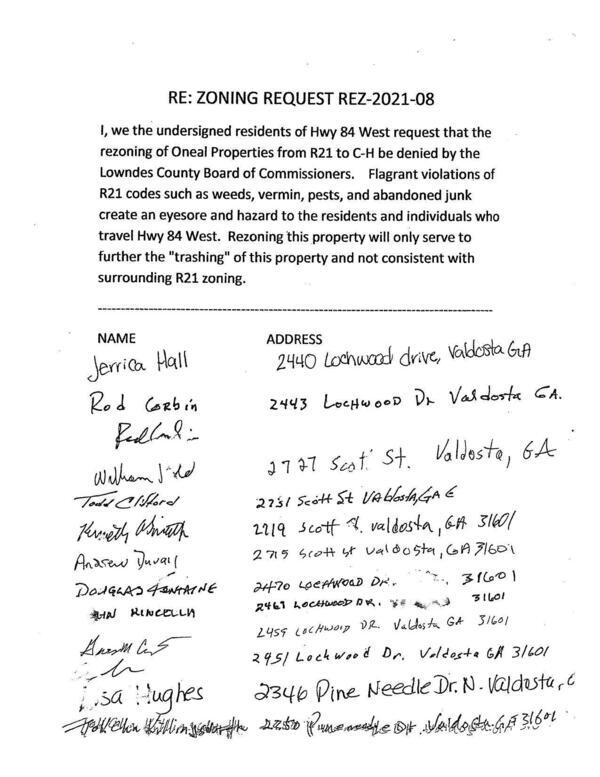 RE: ZONING REQUEST REZ-2021-08
I, we the undersigned residents of Hwy 84 West request that the
rezoning of Oneal Properties from R21 to C-H be denied by the
Lowndes County Board of Commissioners. Flagrant violations of
R21 codes such as weeds, vermin, pests, and abandoned junk
create an eyesore and hazard to the residents and individuals who
travel Hwy 84 West. Rezoning this property will only serve to
further the "trashing" of this property and not consistent with
surrounding R21 zoning.
--------------------------------------------------------------------------------
NAME ADDRESS
Jerrica Hall 2440 Lochwood drive, Valdosta GA
Rod Corbin 2443 LOCHWOOD Dr Valdosta GA.
William 2727 Scott St. Valdosta, GA
Todd Clifford 2731 Scott St VAldosta, GA
Kenneth 2719 Scott St. valdosta, GA 31601
Andrew Duvall 2715 Scott St Valdosta, GA 31601
DOUGLAS FONTAINE 2470 LOCHWOOD DR. 31601
KINCELLA 2467 LOCHWOOD DR. 31601
2459 LOCHWOOD DR. Valdosta GA 31601
2451 Lochwood Dr. Valdosta GA 31601
Lisa Hughes 2346 Pine Needle Dr. N. Valdosta,
Valdosta GA 31601